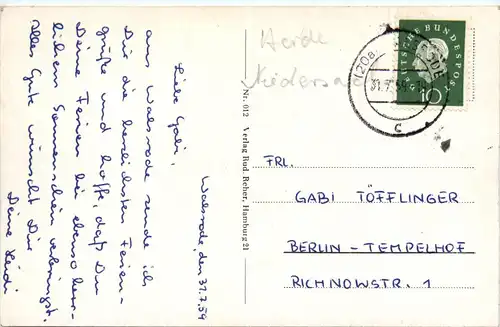 Walsrode, den 31.7.59
Liebe Gabi,
aus Walsrode sende ich
Dir die herzlichsten Ferien-
grüße und hoffe, daß Du
Deine Ferien bei ebenso herr-
lichem Sonnenschein verbringst.
Alles Gute wünscht Dir
Deine Heidi
Nr. 012 Verlag Rud. Reher, Hamburg 21
Heide
(20a)
31.7.59
c
DEUTSCHE BUNDESPOST
10
FRL.
GABI TÖFFLINGER
BERLIN - TEMPELHOF
RICHNOWSTR. 1